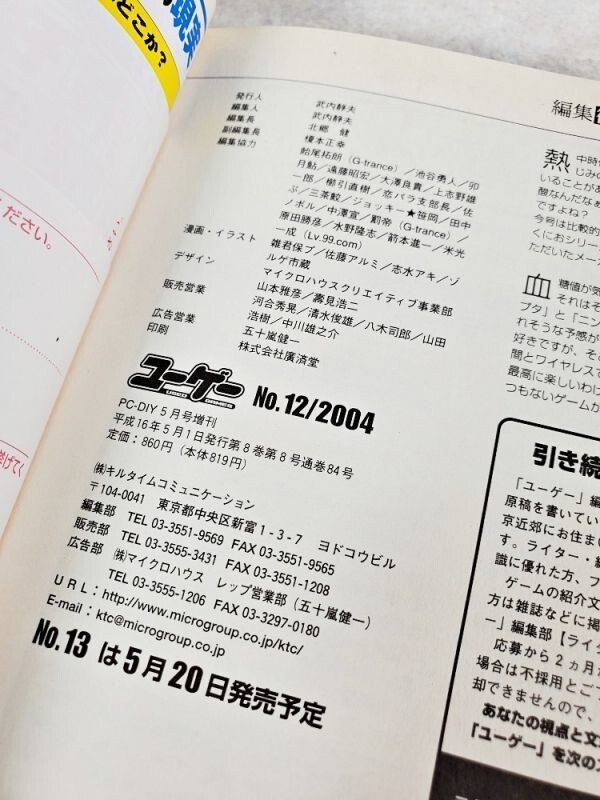 現実
どこか?
ださい。
挙げてく
発行人 武内静夫
編集人 武内静夫
編集長 北郷 健
副編集長 榎本正幸
編集協力 飴尾拓朗(G-trance)/池谷勇人/卯
月鮎/遠藤昭宏/大澤良貴/上志野雄
一郎/櫛引直樹/恋パラ支部長/佐
ぶ/三茶鮫/ジョッキー★笹岡/田中
ノボル/中澤宣/罰帝(G-trance)/
原田勝彦/水野隆志/箭本進一/米光
一成(Lv.99.com)
漫画・イラスト 雑君保プ/佐藤アルミ/志水アキ/ゾ
ルゲ市蔵
デザイン マイクロハウスクリエイティブ事業部
山本雅彦/壽見浩二
販売営業 河合秀晃/清水俊雄/八木司郎/山田
浩樹/中川雄之介
広告営業 五十嵐健一
印刷 株式会社廣済堂
ユーゲー No.12/2004
PC-DIY 5月号増刊
平成16年5月1日発行第8巻第8号通巻84号
定価:860円(本体819円)
㈱キルタイムコミュニケーション
〒104-0041 東京都中央区新富1-3-7 ヨドコウビル
編集部 TEL 03-3551-9569 FAX 03-3551-9565
販売部 TEL 03-3555-3431 FAX 03-3551-1208
広告部 ㈱マイクロハウス レップ営業部(五十嵐健一)
TEL 03-3555-1206 FAX 03-3297-0180
URL:http://www.microgroup.co.jp/ktc/
E-mail:ktc@microgroup.co.jp
No.13 は5月20日発売予定
編集
熱 中時代
じみの
いることがあ
醸なんだなあ
ですよね?
今号は比較的
くにおシリー
ただいたメー
血 糖値が気
それはそ
プタ」と「ニン
れそうな予感が
好きですが、その
間とワイヤレスで
最高に楽しいわけ
つもないゲームか
引き続
「ユーゲー」編
原稿を書いてい
京近郊にお住ま
す。ライター・
識に優れた方、フ
ゲームの紹介文
方は雑誌などに掲
ー」編集部【ライタ
応募から2ヵ月た
場合は不採用とご
却できませんので、
あなたの視点と文
「ユーゲー」を次のス